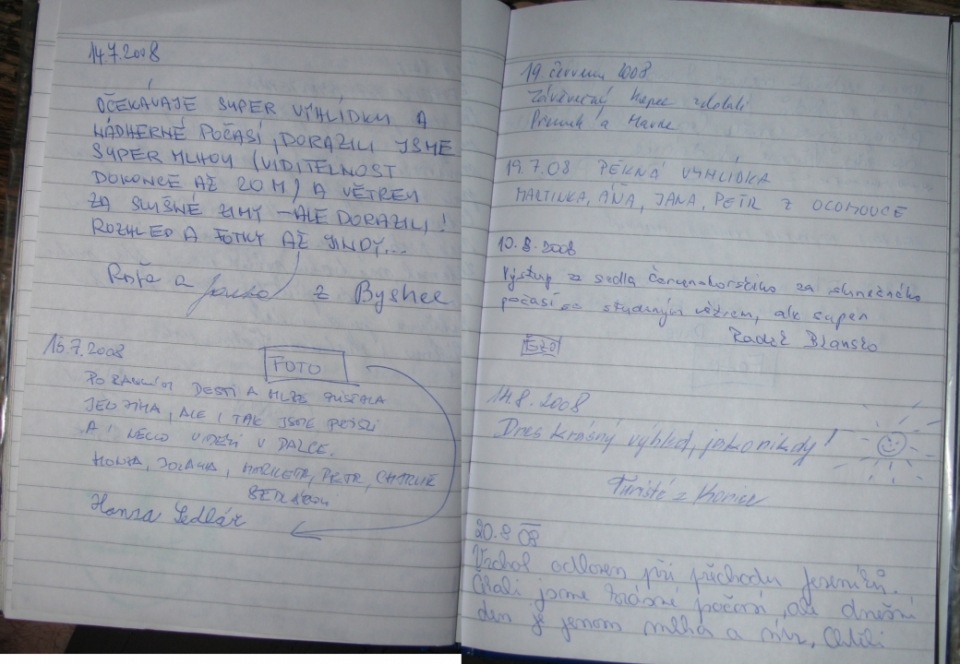 14.7.2008
OČEKÁVAJE SUPER VÝHLÍDKU A
NÁDHERNÉ POČASÍ, DORAZILI JSME
SUPER MLHOU (VIDITELNOST
DOKONCE AŽ 20 M) A VĚTREM
ZA SLUŠNÉ ZIMY – ALE DORAZILI!
ROZHLED A FOTKY AŽ JINDY...
a z
15.7.2008
FOTO
PO RANNÍM DEŠTI A MLZE ZŮSTALA
JEN ZIMA, ALE I TAK JSME DOŠLI
A I NĚCO VIDĚLI V DÁLCE.
HONZA, JOLANA, MARKÉTA, PETR,
Honza Sedlář
19. června 2008
kopec zdolali
a
19.7.08 PĚKNÁ VYHLÍDKA
MARTINKA, ÁŇA, JANA, PETR Z OLOMOUCE
10.8.2008
Výstup ze sedla za slunečného
počasí se studeným větrem, ale super
Radek Blansko
14.8.2008
Dnes krásný výhled, jako nikdy!
Turisté z Konice
20.8 08
Vrchol zdolanem při přechodu Jeseníků.
jsme krásné počasí, ale dnešní
den je jenom mlha a